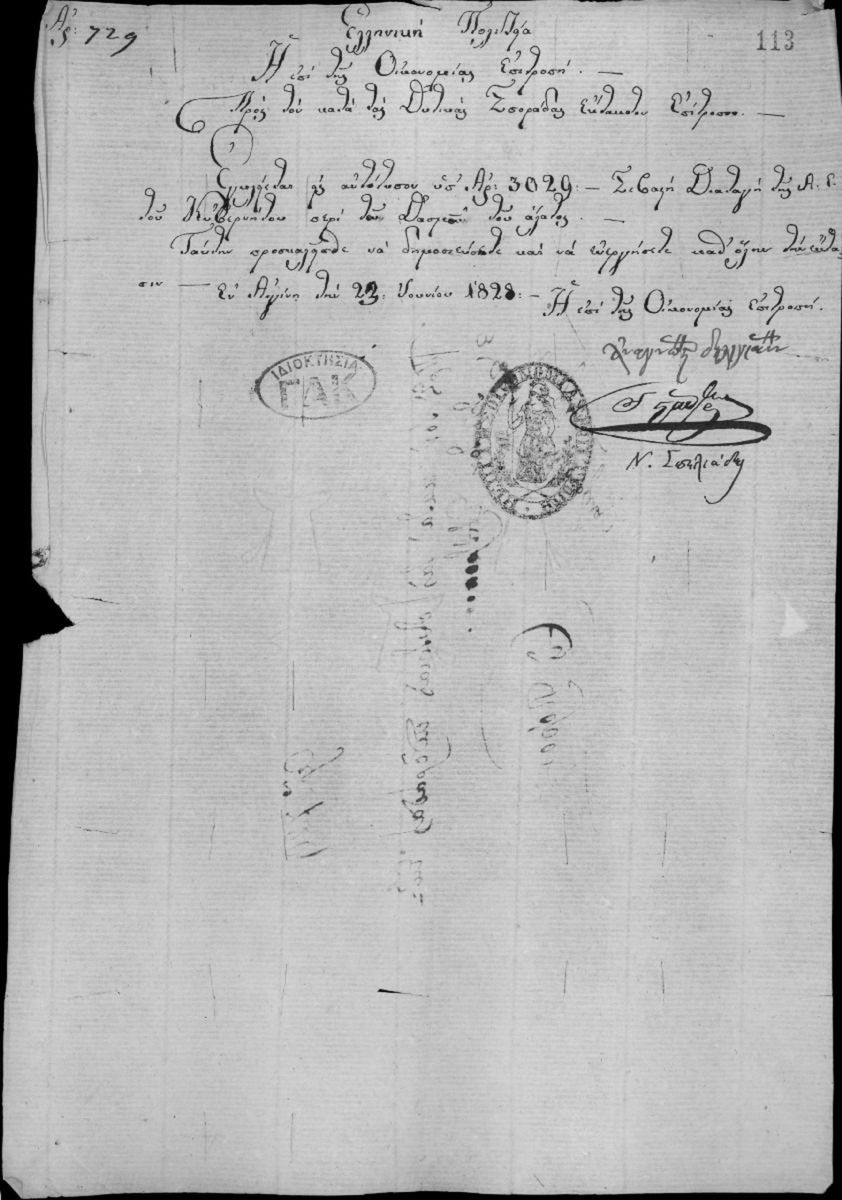 Ἀρ: 729
113
Ἑλληνικὴ Πολιτεία
Ἡ ἐπὶ τῆς Οἰκονομίας Ἐπιτροπή. —
Πρὸς τὸν κατὰ τὰς Δυτικὰς Σποράδας Ἔκτακτον Ἐπίτροπον. —
Ἐγκλείεται αὐτότυπον ὑπ' Ἀρ: 3029: — Σεβαστὴ Διαταγὴ τῆς Α. Ε.
τοῦ Κυβερνήτου περὶ τοῦ τοῦ ἅλατος. —
Ταύτην προσκαλεῖσθε νὰ δημοσιεύσετε καὶ νὰ ἐνεργήσετε καθ' ὅλην τὴν ἔκτα-
σιν — Ἐν Αἰγίνῃ τὴν 22: Ἰουνίου 1828: — Ἡ ἐπὶ τῆς Οἰκονομίας Ἐπιτροπή.
Ν. Σπηλιάδης
ΙΔΙΟΚΤΗΣΙΑ
ΓΑΚ